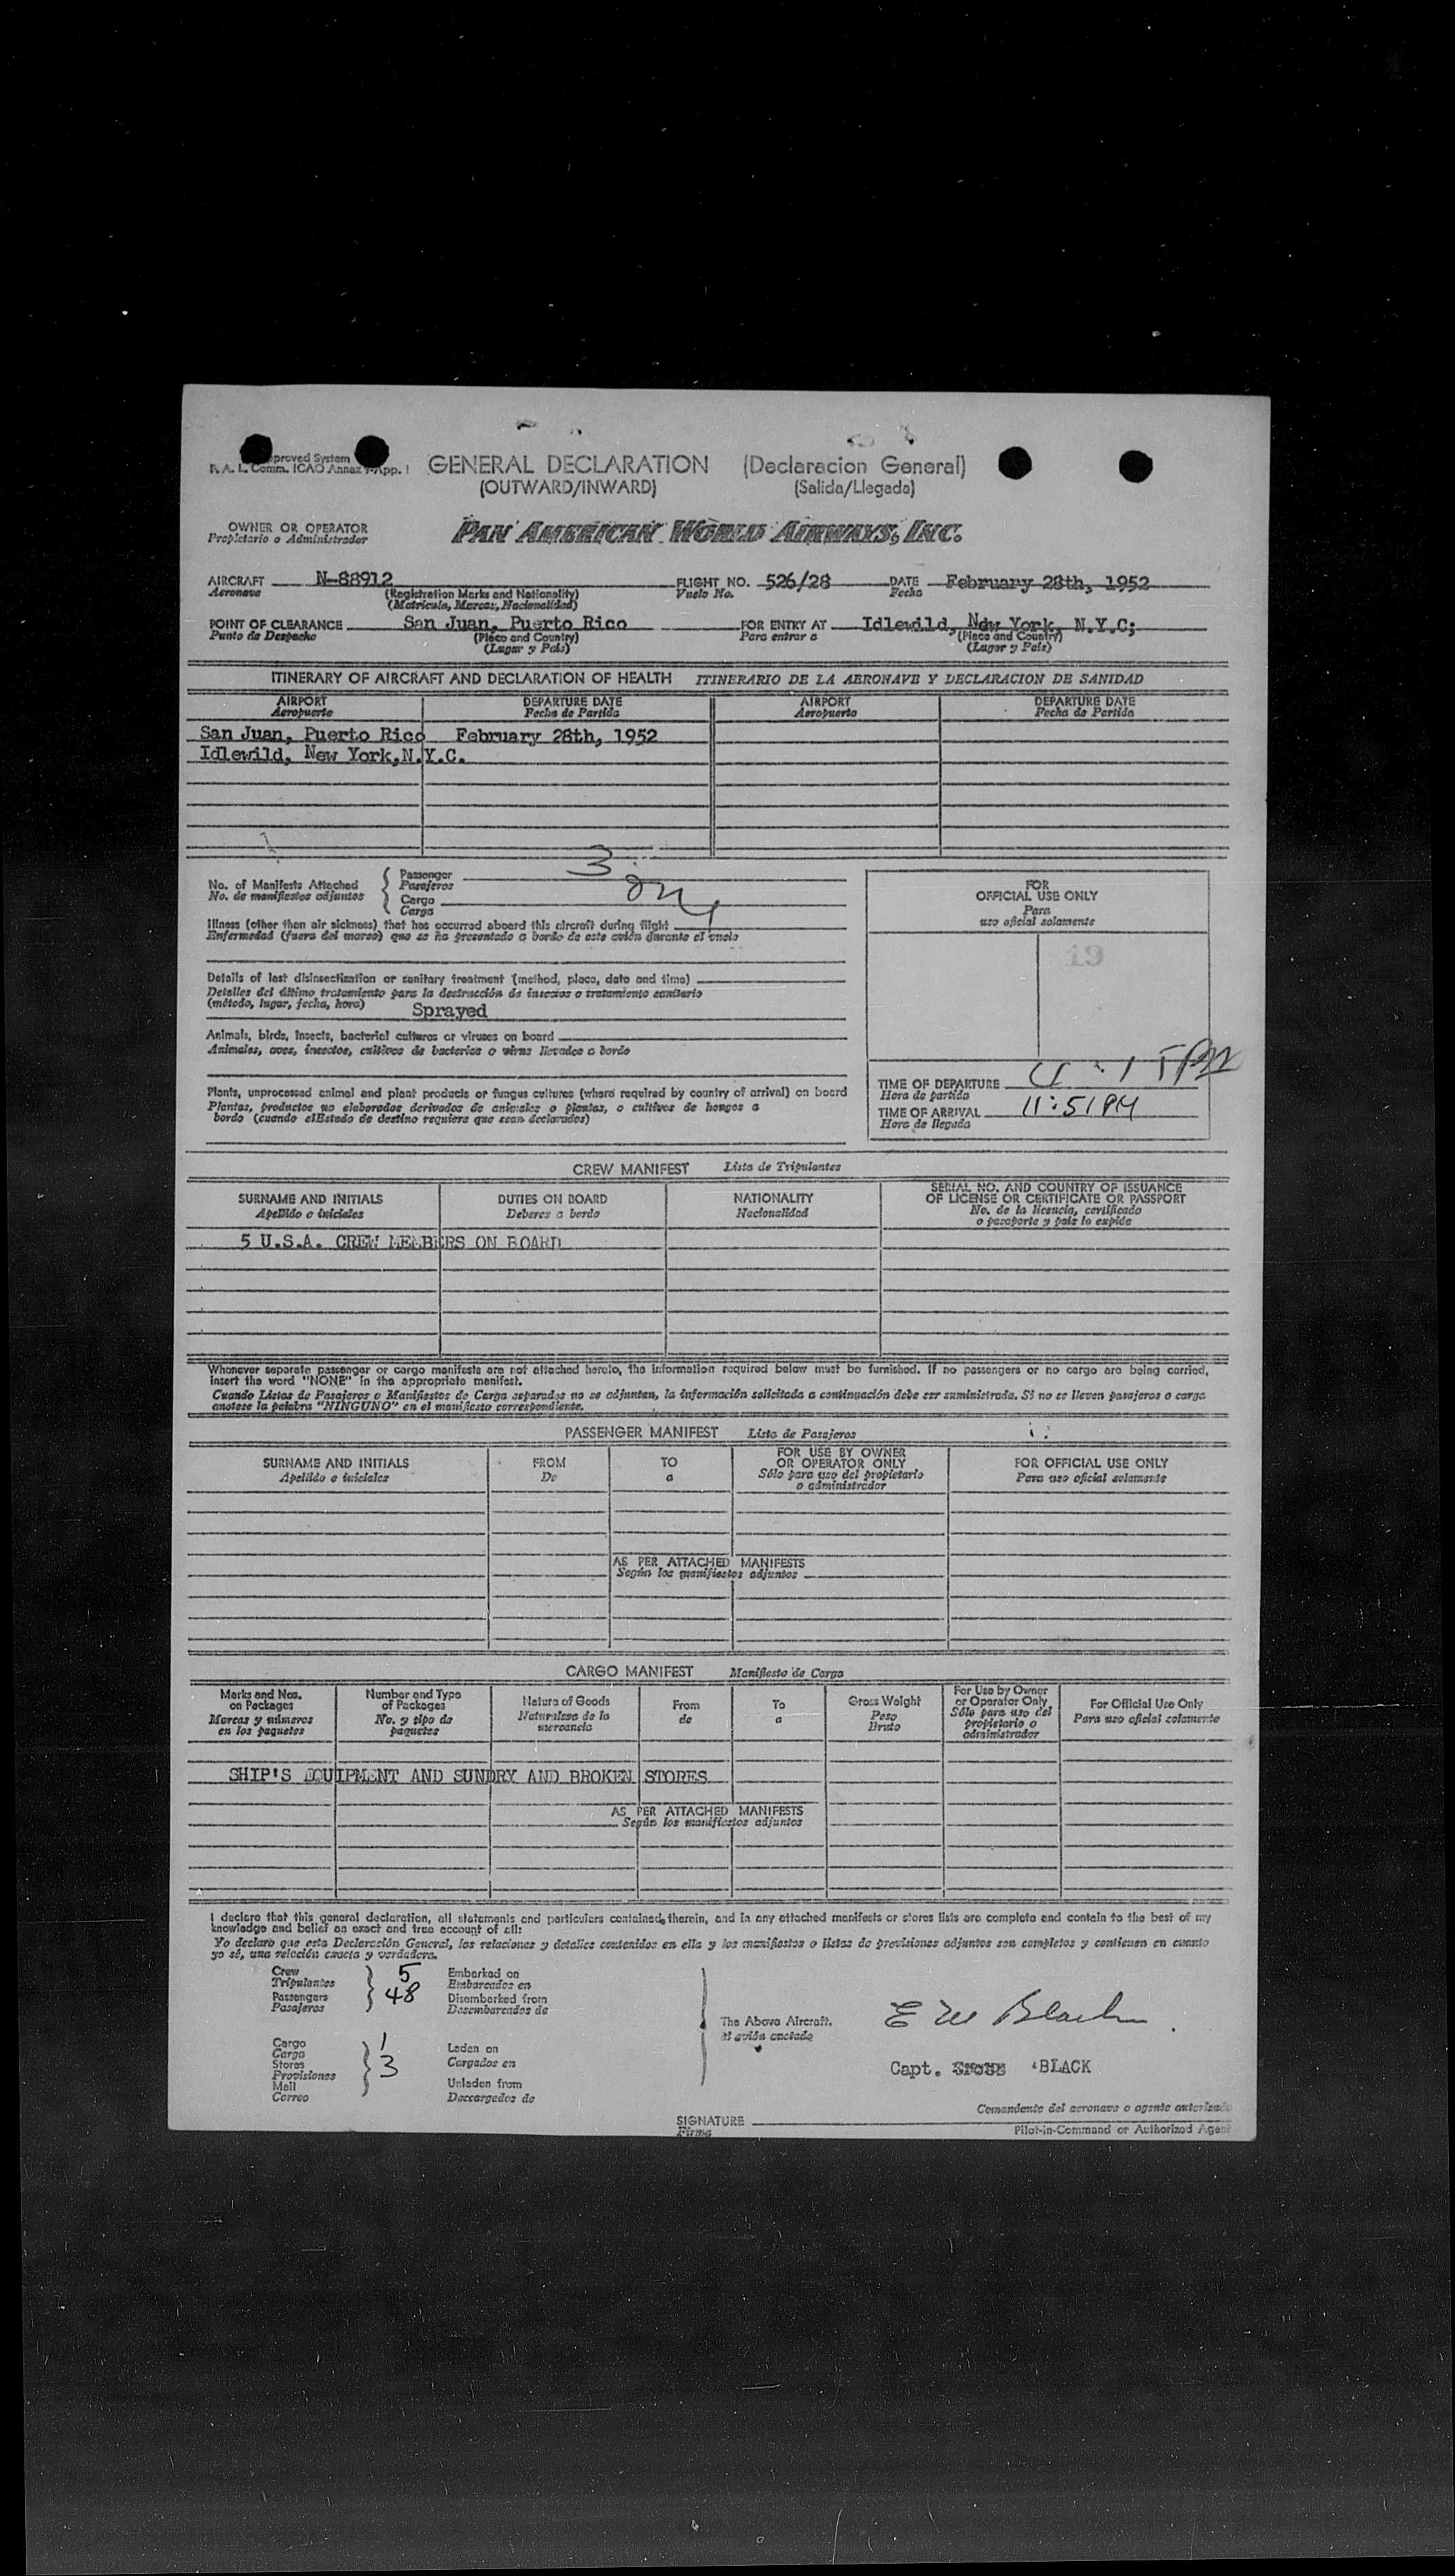 proved System
Comm. ICAO Annex App. I
GENERAL DECLARATION (Declaracion General)
(OUTWARD/INWARD) (Salida/Llegada)
OWNER OR OPERATOR
Propietario o Administrador
PAN AMERICAN WORLD AIRWAYS, INC.
AIRCRAFT N-88912 FLIGHT NO. 526/28 DATE February 28th, 1952
Aeronave (Registration Marks and Nationality) Vuelo No. Fecha
(Matricula, Marcas, Nacionalidad)
POINT OF CLEARANCE San Juan, Puerto Rico FOR ENTRY AT Idlewild, New York, N.Y.C;
Punto de Despacho (Place and Country) Para entrar a (Place and Country)
(Lugar y País) (Lugar y País)
ITINERARY OF AIRCRAFT AND DECLARATION OF HEALTH ITINERARIO DE LA AERONAVE Y DECLARACION DE SANIDAD
AIRPORT DEPARTURE DATE AIRPORT DEPARTURE DATE
Aeropuerto Fecha de Partida Aeropuerto Fecha de Partida
San Juan, Puerto Rico February 28th, 1952
Idlewild, New York,N.Y.C.
No. of Manifests Attached
No. de manifiestos adjuntos
Passenger 3
Pasajeros
Cargo
Carga
Illness (other than air sickness) that has occurred aboard this aircraft during flight
Enfermedad (fuera del mareo) que se ha presentado a bordo de este avión durante el vuelo
Details of last disinsectization or sanitary treatment (method, place, date and time)
Detalles del último tratamiento para la destrucción de insectos o tratamiento sanitario
(método, lugar, fecha, hora) Sprayed
Animals, birds, insects, bacterial cultures or viruses on board
Animales, aves, insectos, cultivos de bacterias o virus llevados a bordo
Plants, unprocessed animal and plant products or fungus cultures (where required by country of arrival) on board
Plantas, productos no elaborados derivados de animales o plantas, o cultivos de hongos a
bordo (cuando el Estado de destino requiera que sean declarados)
FOR
OFFICIAL USE ONLY
Para
uso oficial solamente
TIME OF DEPARTURE
Hora de partida
TIME OF ARRIVAL 11:51PM
Hora de llegada
CREW MANIFEST Lista de Tripulantes
SURNAME AND INITIALS DUTIES ON BOARD NATIONALITY SERIAL NO. AND COUNTRY OF ISSUANCE
OF LICENSE OR CERTIFICATE OR PASSPORT
Apellido e iniciales Deberes a bordo Nacionalidad No. de la licencia, certificado
o pasaporte y país lo expide
5 U.S.A. CREW MEMBERS ON BOARD
Whenever separate passenger or cargo manifests are not attached hereto, the information required below must be furnished. If no passengers or no cargo are being carried,
insert the word "NONE" in the appropriate manifest.
Cuando Listas de Pasajeros o Manifiestos de Carga separados no se adjuntan, la información solicitada a continuación debe ser suministrada. Si no se lleven pasajeros o carga
anotese la palabra "NINGUNO" en el manifiesto correspondiente.
PASSENGER MANIFEST Lista de Pasajeros
SURNAME AND INITIALS FROM TO FOR USE BY OWNER OR OPERATOR ONLY FOR OFFICIAL USE ONLY
Apellido e iniciales De a Sólo para uso del propietario o administrador Para uso oficial solamente
AS PER ATTACHED MANIFESTS
Según los manifiestos adjuntos
CARGO MANIFEST Manifiesto de Carga
Marks and Nos. on Packages Number and Type of Packages Nature of Goods From To Gross Weight For Use by Owner or Operator Only For Official Use Only
Marcas y números en los paquetes No. y tipo de paquetes Naturaleza de la mercancia de a Peso Bruto Sólo para uso del propietario o administrador Para uso oficial solamente
SHIP'S EQUIPMENT AND SUNDRY AND BROKEN STORES
AS PER ATTACHED MANIFESTS
Según los manifiestos adjuntos
I declare that this general declaration, all statements and particulars contained, therein, and in any attached manifests or stores lists are complete and contain to the best of my
knowledge and belief an exact and true account of all:
Yo declaro que esta Declaración General, las relaciones y detalles contenidos en ella y los manifiestos o listas de provisiones adjuntos son completos y contienen en cuanto
yo sé, una relación exacta y verdadera.
Crew 5 Embarked on
Tripulantes Embarcados en
Passengers 48 Disembarked from
Pasajeros Desembarcados de
The Above Aircraft.
el avión anotado
E W Black
Cargo 1 Laden on
Carga Cargados en
Stores 3
Provisiones
Mail Unladen from
Correo Descargados de
Capt. BLACK
Comandante del aeronave o agente autorizado
SIGNATURE
Firma
Pilot-in-Command or Authorized Agent